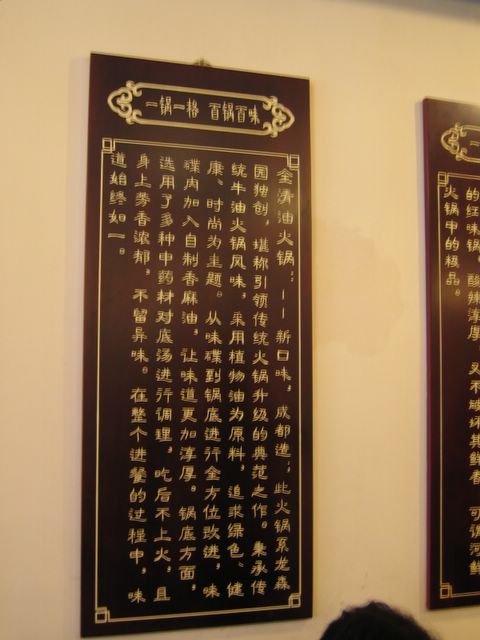 一锅一格 百锅百味
全清油火锅：——新口味，成都造；此火锅系龙森
园独创，堪称引领传统火锅升级的典范之作。秉承传
统牛油火锅风味，采用植物油为原料，追求绿色、健
康、时尚为主题。从味碟到锅底进行全方位改进，味
碟内加入自制香麻油，让味道更加淳厚。锅底方面，
选用了多种中药材对底汤进行调理，吃后不上火，且
身上芳香浓郁，不留异味。在整个进餐的过程中，味
道始终如一。
的红味锅，酸辣淳厚，又不破坏其鲜香，可调河鲜
火锅中的极品。